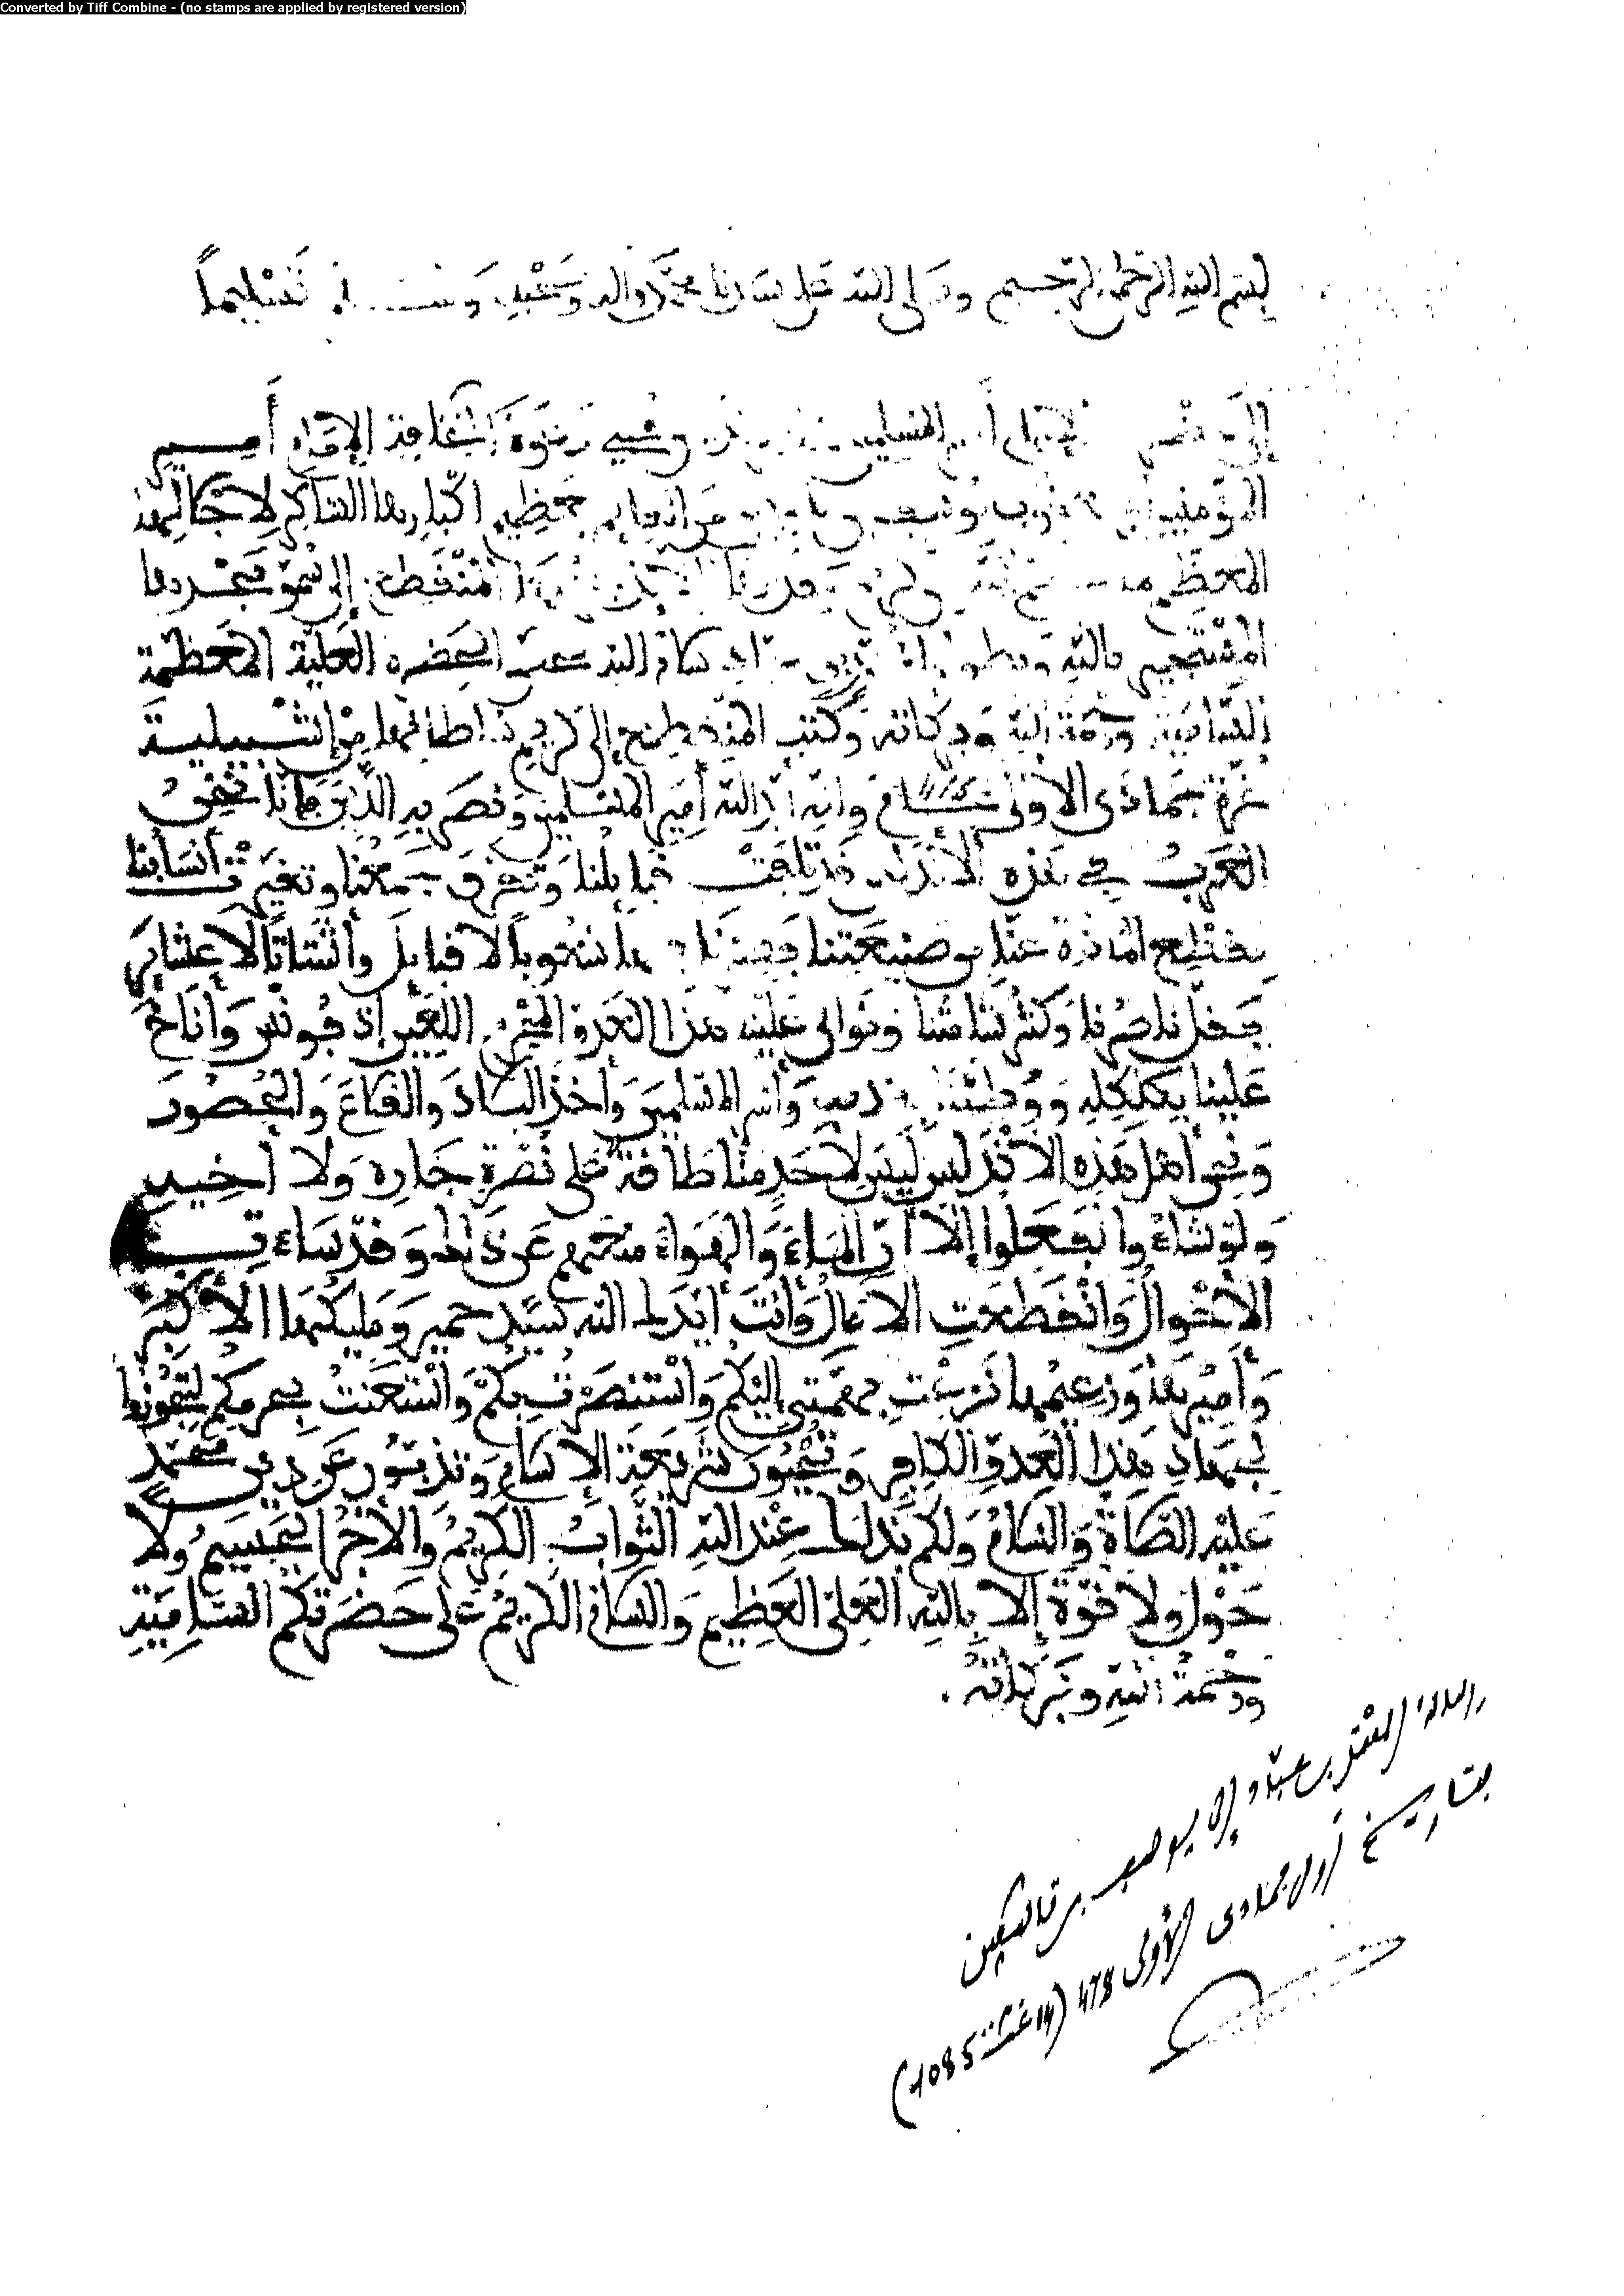 Converted by Tiff Combine - (no stamps are applied by registered version)
بسم الله الرحمن الرحيم وصلى الله على سيدنا محمد وآله وصحبه وسلم تسليماً
إلى الإمام أمير المسلمين دعوة الخلافة الإمام أمير
المؤمنين بعظيم اكبارها الشاكر لاجلالها
المعظم المنقطع إلى سمو مجدها
المستجير بالله سلام الله الحضرة العلية المعظمة
السامية ورحمة الله وبركاته وكتب المنقطع إلى كريم من إشبيلية
غرة جمادى الأولى وانه أيد الله أمير المسلمين ونصر به الدين فإنا نحن
العرب في هذه الأندلس قد تلفت قبايلنا وتفرق جمعنا وتغيرت أنسابنا
بقطع المادة عنا من صنيعتنا فصرنا شعوباً لا قبايل وأشتاتاً لا عشاير
فقل ناصرنا وكثر شامتنا وتوالى علينا هذا العدو المجرم اللعين أذفونش وأناخ
علينا بكلكله ووطئنا وأسر المسلمين وأخذ البلاد والقلاع والحصون
ونحن أهل هذه الأندلس ليس لأحد منا طاقة على نصرة جاره ولا أخيه
ولو شاءوا لفعلوا إلا أن الماء والهواء منعهم عن ذلك وقد ساءت
الأحوال وانقطعت الآمال وأنت أيدك الله سيد حمير ومليكها الأكبر
وأميرها وزعيمها نزعت بهمتي إليكم واستنصرت بكم واستعنت بحرمكم لتجوزوا
لجهاد هذا العدو الكافر وتحيون شريعة الإسلام وتذبون عن دين محمد
عليه الصلاة والسلام ولكم بذلك عند الله الثواب الكريم والأجر الجسيم ولا
حول ولا قوة إلا بالله العلي العظيم والسلام الكريم على حضرتكم السامية
ورحمة الله وبركاته .
رسالة المعتمد بن عباد إلى يوسف بن تاشفين
بتاريخ أول جمادى الأولى 478 (14 غشت 1085)